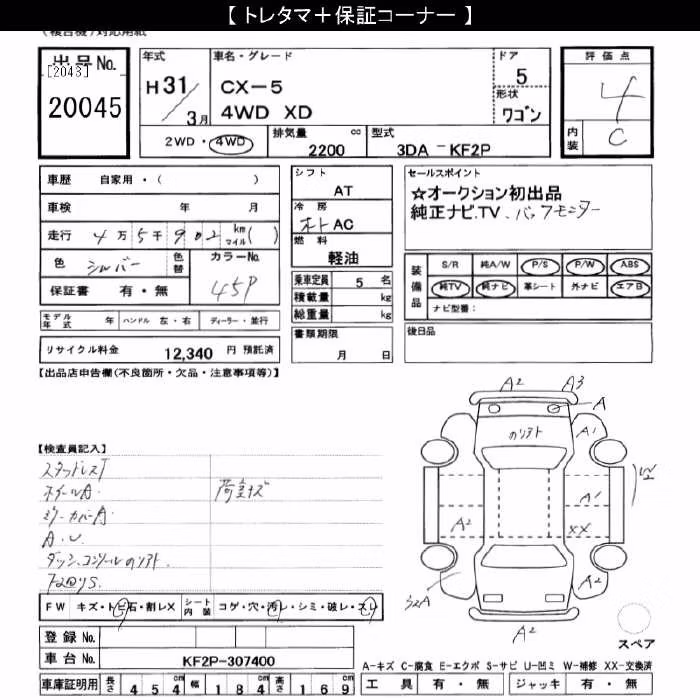 【 トレタマ＋保証コーナー 】
出品No.
[2043]
20045
年式
H 31/3月
車名・グレード
CX-5
4WD XD
ドア
5
形状
ワゴン
評価点
4
内装
C
2WD・4WD
排気量 cc
2200
型式
3DA -KF2P
車歴 自家用・( )
車検 年 月
走行 4万5千902 km マイル( )
色 シルバー 色替
カラーNo.
45P
保証書 有・無
モデル年式 年 ハンドル 左・右 ディーラー・並行
リサイクル料金 12,340 円 預託済
シフト
AT
冷房
オート AC
燃料
軽油
乗車定員 5 名
積載量 kg
総重量 kg
書類期限
月 日
セールスポイント
☆オークション初出品
純正ナビ.TV、バックモニター
装備品
S/R 純A/W P/S P/W ABS
純TV 純ナビ 革シート 外ナビ エアB
ナビ型番：
後日品
【出品店申告欄(不良箇所・欠品・注意事項等)】
【検査員記入】
スタッドレスT
ホイールA.
荷室キズ
ミラーカバーA.
A.U.
ダッシュ、コンソールのリフト.
FW キズ・トビ石・割レX
シート内装 コゲ・穴・汚レ・シミ・破レ・スレ
登録No.
車台No. KF2P-307400
車庫証明用 長さ 454cm 幅 184cm 高さ 169cm
A2
A3
A
のリフト
A1
A1
A2
XX
A2
A2
スペア
A-キズ C-腐食 E-エクボ S-サビ U-凹ミ W-補修 XX-交換済
工具 有・無 ジャッキ 有・無